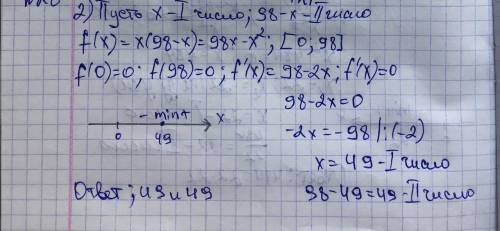 2) Пусть x - I число; 98-x - II число
f(x) = x(98-x) = 98x - x²; [0, 98]
f(0)=0; f(98)=0; f'(x) = 98-2x; f'(x)=0
98-2x=0
- min + x
0 49
-2x = -98 |:(-2)
x = 49 - I число
Ответ; 49 и 49
98-49=49 - II число